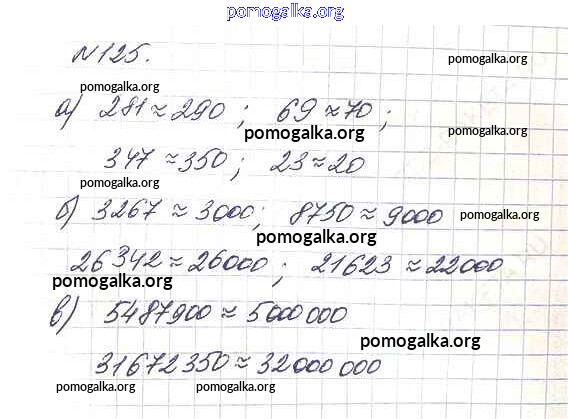 pomogalka.org
№125.
pomogalka.org
pomogalka.org
а) 281≈290; 69≈70;
pomogalka.org
347≈350; 23≈20
pomogalka.org
б) 3267≈3000; 8750≈9000
pomogalka.org
pomogalka.org
26342≈26000; 21623≈22000
pomogalka.org
в) 5487900≈5000000
pomogalka.org
31672350≈32000000
pomogalka.org
pomogalka.org